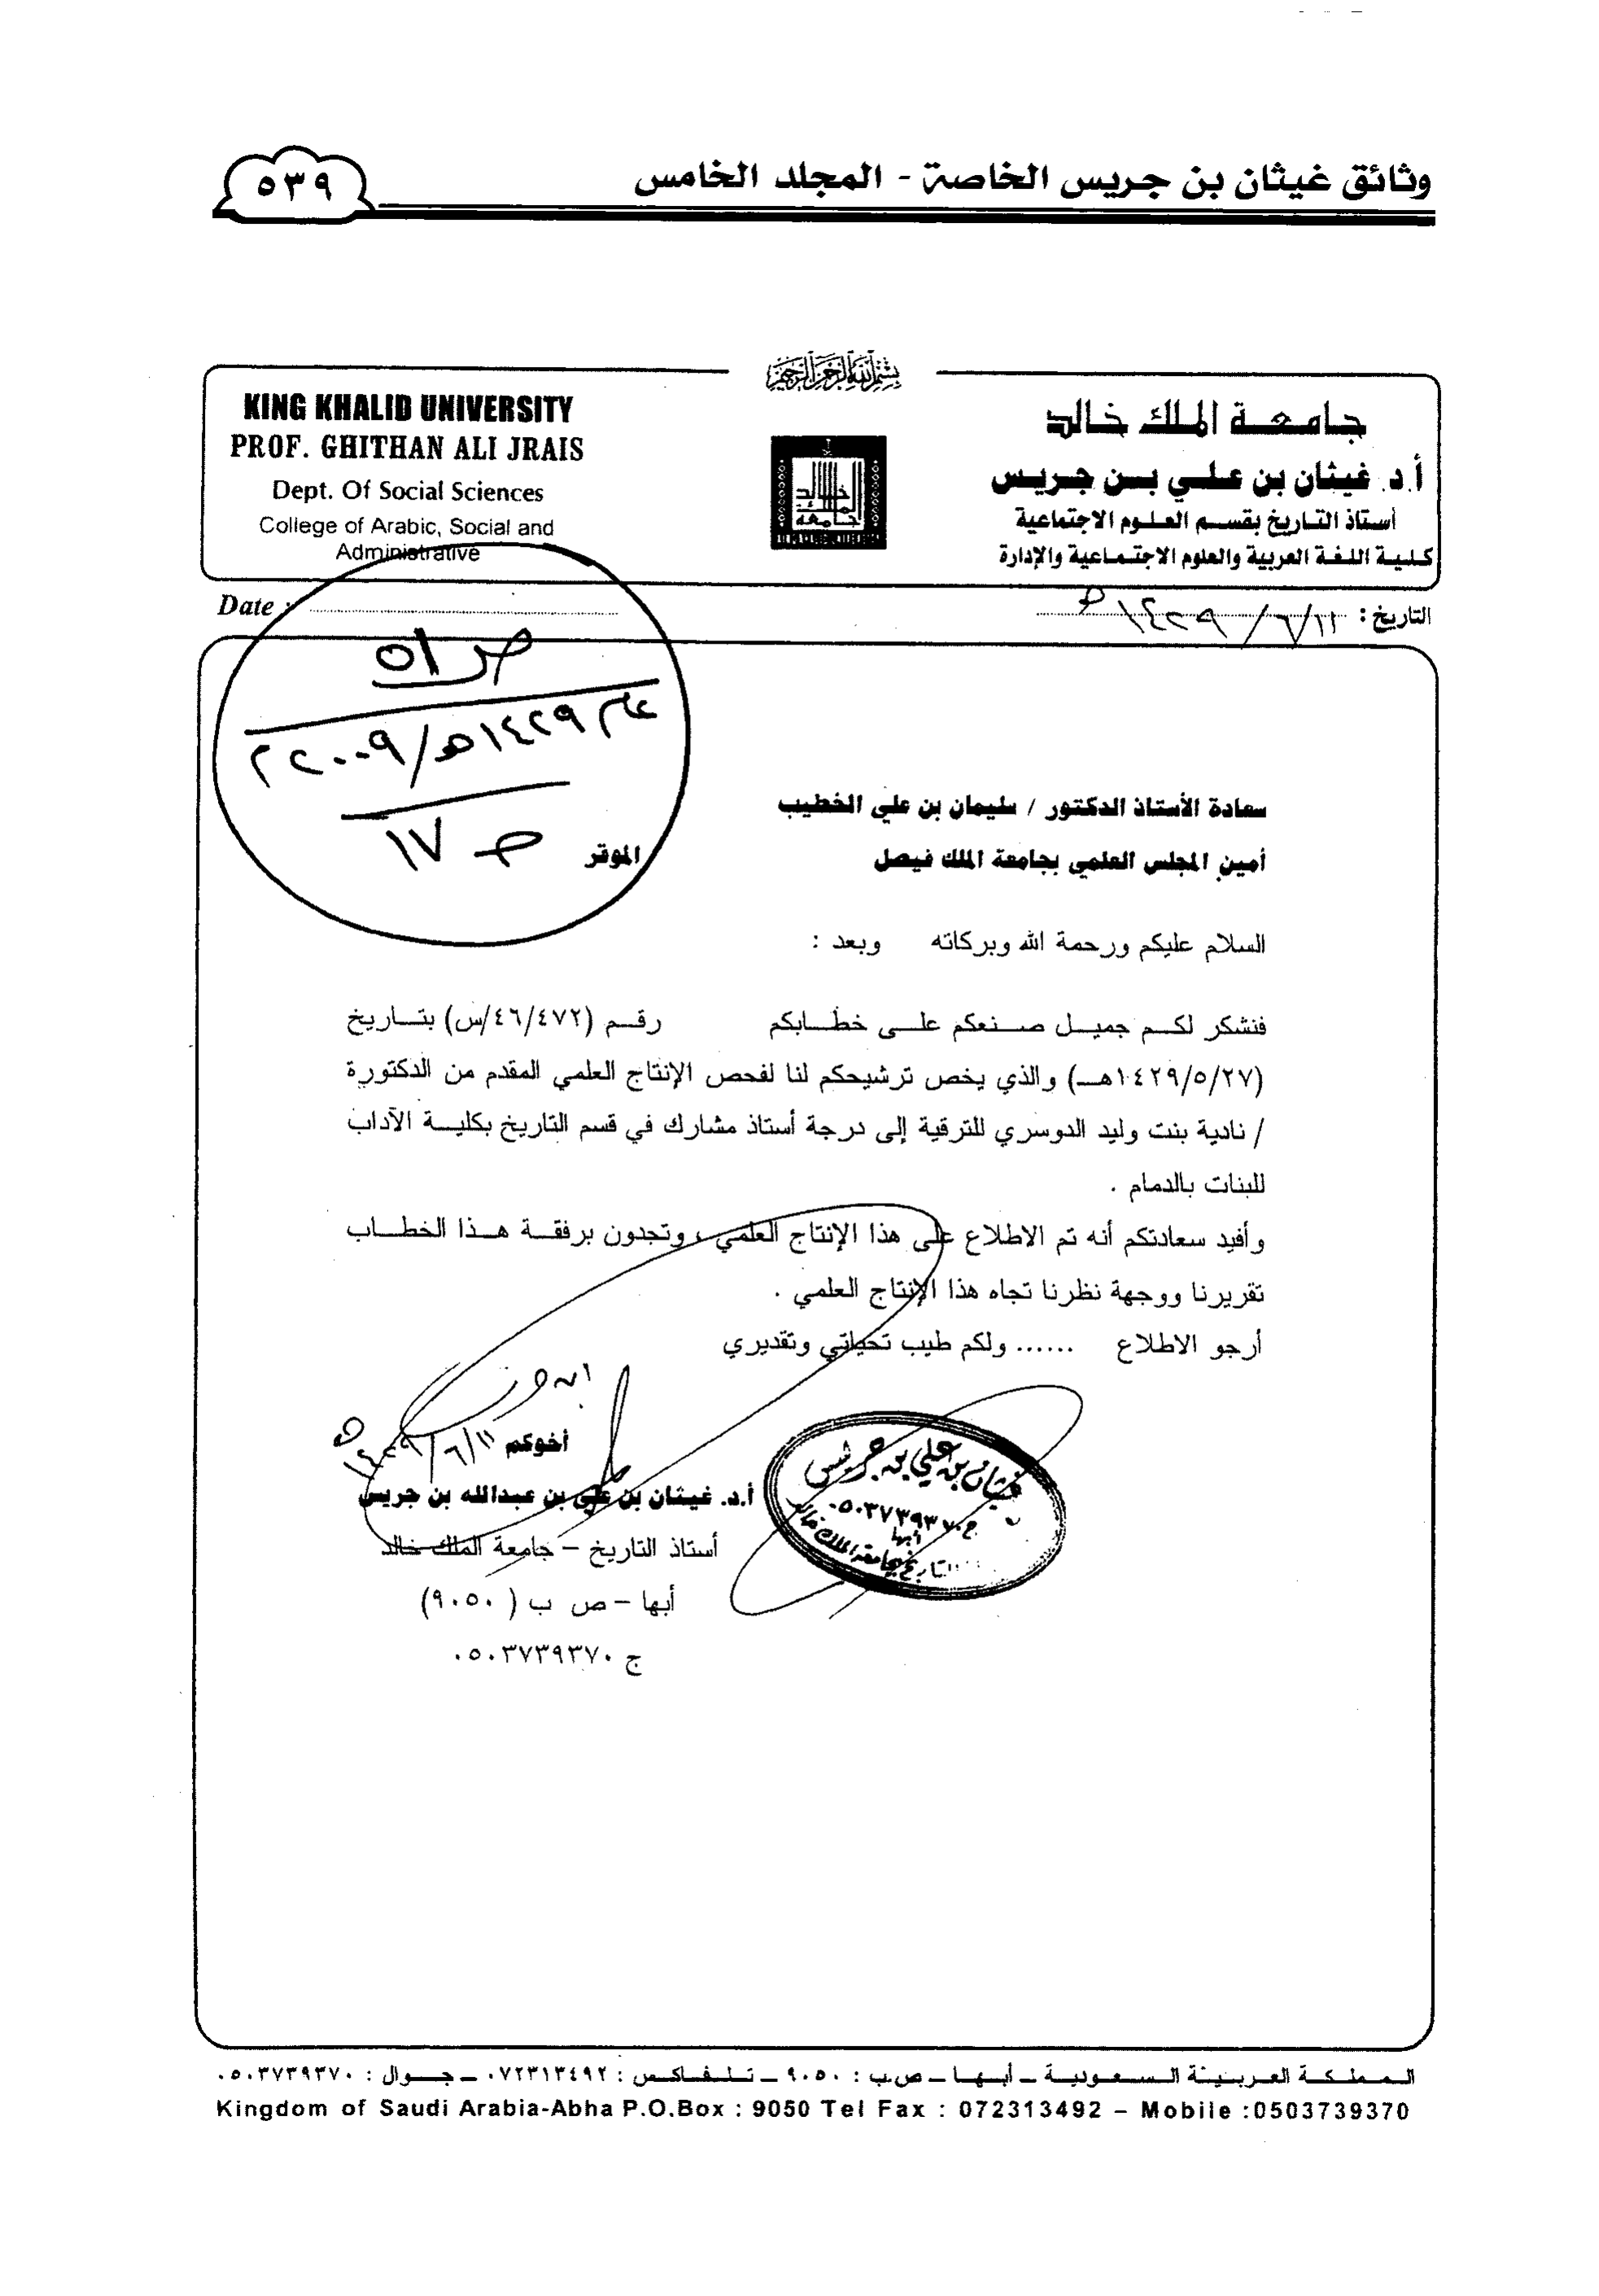 وثائق غيثان بن جريس الخاصة - المجلد الخامس
٥٣٩
بسم الله الرحمن الرحيم
جامعة الملك خالد
أ.د. غيثان بن علي بن جريس
أستاذ التاريخ بقسم العلوم الاجتماعية
كلية اللغة العربية والعلوم الاجتماعية والإدارة
KING KHALID UNIVERSITY
PROF. GHITHAN ALI JRAIS
Dept. Of Social Sciences
College of Arabic, Social and
Administrative
التاريخ : ١١/٦/١٤٢٩هـ
Date :
عام ١٤٢٩هـ/٢٠٠٩م
ص ١٧
سعادة الأستاذ الدكتور / سليمان بن علي الخطيب
أمين المجلس العلمي بجامعة الملك فيصل الموقر
السلام عليكم ورحمة الله وبركاته وبعد :
فنشكر لكم جميل صنعكم على خطابكم رقم (٤٦/٤٧٢/س) بتاريخ
(١٤٢٩/٥/٢٧هـ) والذي يخص ترشيحكم لنا لفحص الإنتاج العلمي المقدم من الدكتورة
/ نادية بنت وليد الدوسري للترقية إلى درجة أستاذ مشارك في قسم التاريخ بكلية الآداب
للبنات بالدمام .
وأفيد سعادتكم أنه تم الاطلاع على هذا الإنتاج العلمي ، وتجدون برفقة هذا الخطاب
تقريرنا ووجهة نظرنا تجاه هذا الإنتاج العلمي .
أرجو الاطلاع ...... ولكم طيب تحياتي وتقديري
أخوكم
١١/٦/١٤٢٩هـ
أ.د. غيثان بن علي بن عبدالله بن جريس
أستاذ التاريخ – جامعة الملك خالد
أبها – ص ب ( ٩٠٥٠)
ج ٠٥٠٣٧٣٩٣٧٠
غيثان بن علي بن جريس
ج ٠٥٠٣٧٣٩٣٧٠
أبها
التاريخ بجامعة الملك خالد
المملكة العربية السعودية – أبها – ص.ب : ٩٠٥٠ – تلفاكس : ٠٧٢٣١٣٤٩٢ – جوال : ٠٥٠٣٧٣٩٣٧٠
Kingdom of Saudi Arabia-Abha P.O.Box : 9050 Tel Fax : 072313492 – Mobile :0503739370